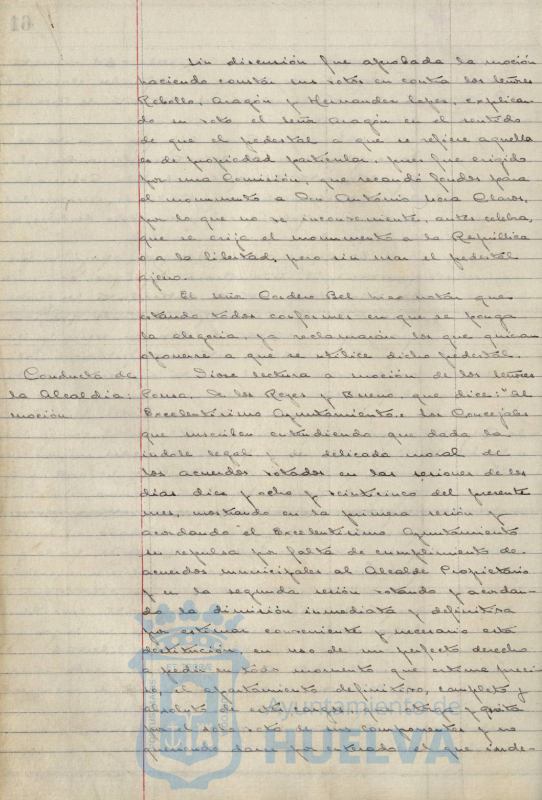 Sin discusión fue aprobada la moción
haciendo constar sus votos en contra los señores
Rebollo, Aragón y Hernandez Lopez, explican-
do su voto el señor Aragón en el sentido
de que el pedestal a que se refiere aquella
es de propiedad particular, pues fue erigido
por una Comisión, que recaudó fondos para
el monumento a Don Antonio Mora Claros,
por lo que no ve inconveniente, antes celebra,
que se erija el monumento a la República
o a la libertad, pero sin usar el pedestal
ajeno.
El señor Cordero Bel hizo notar que
estando todos conformes en que se ponga
la alegoría, ya reclamarán los que quieran
oponerse a que se utilice dicho pedestal.
Conducta de
la Alcaldia:
moción
Diose lectura a moción de los señores
Ponce, de los Reyes y Bueno, que dice: "Al
Excelentísimo Ayuntamiento. Los Concejales
que suscriben entendiendo que dada la
índole legal y delicada moral de
los acuerdos votados en las sesiones de los
dias diez y ocho y veinticinco del presente
mes, mostando en la primera sesión y
acordando el Excelentísimo Ayuntamiento
su repulsa por falta de cumplimiento de
acuerdos municipales al Alcalde Propietario
y en la segunda sesión votando y acordan-
do la dimisión inmediata y definitiva
por estimar conveniente y necesario esta
destitución, en uso de un perfecto derecho
a pedir en todo momento que estime preci-
so, el apartamiento definitivo, completo y
absoluto de cargos, que otorga y quita
por el solo voto de sus componentes y no
queriendo darse por enterado el que inde-
Ayuntamiento de
HUELVA